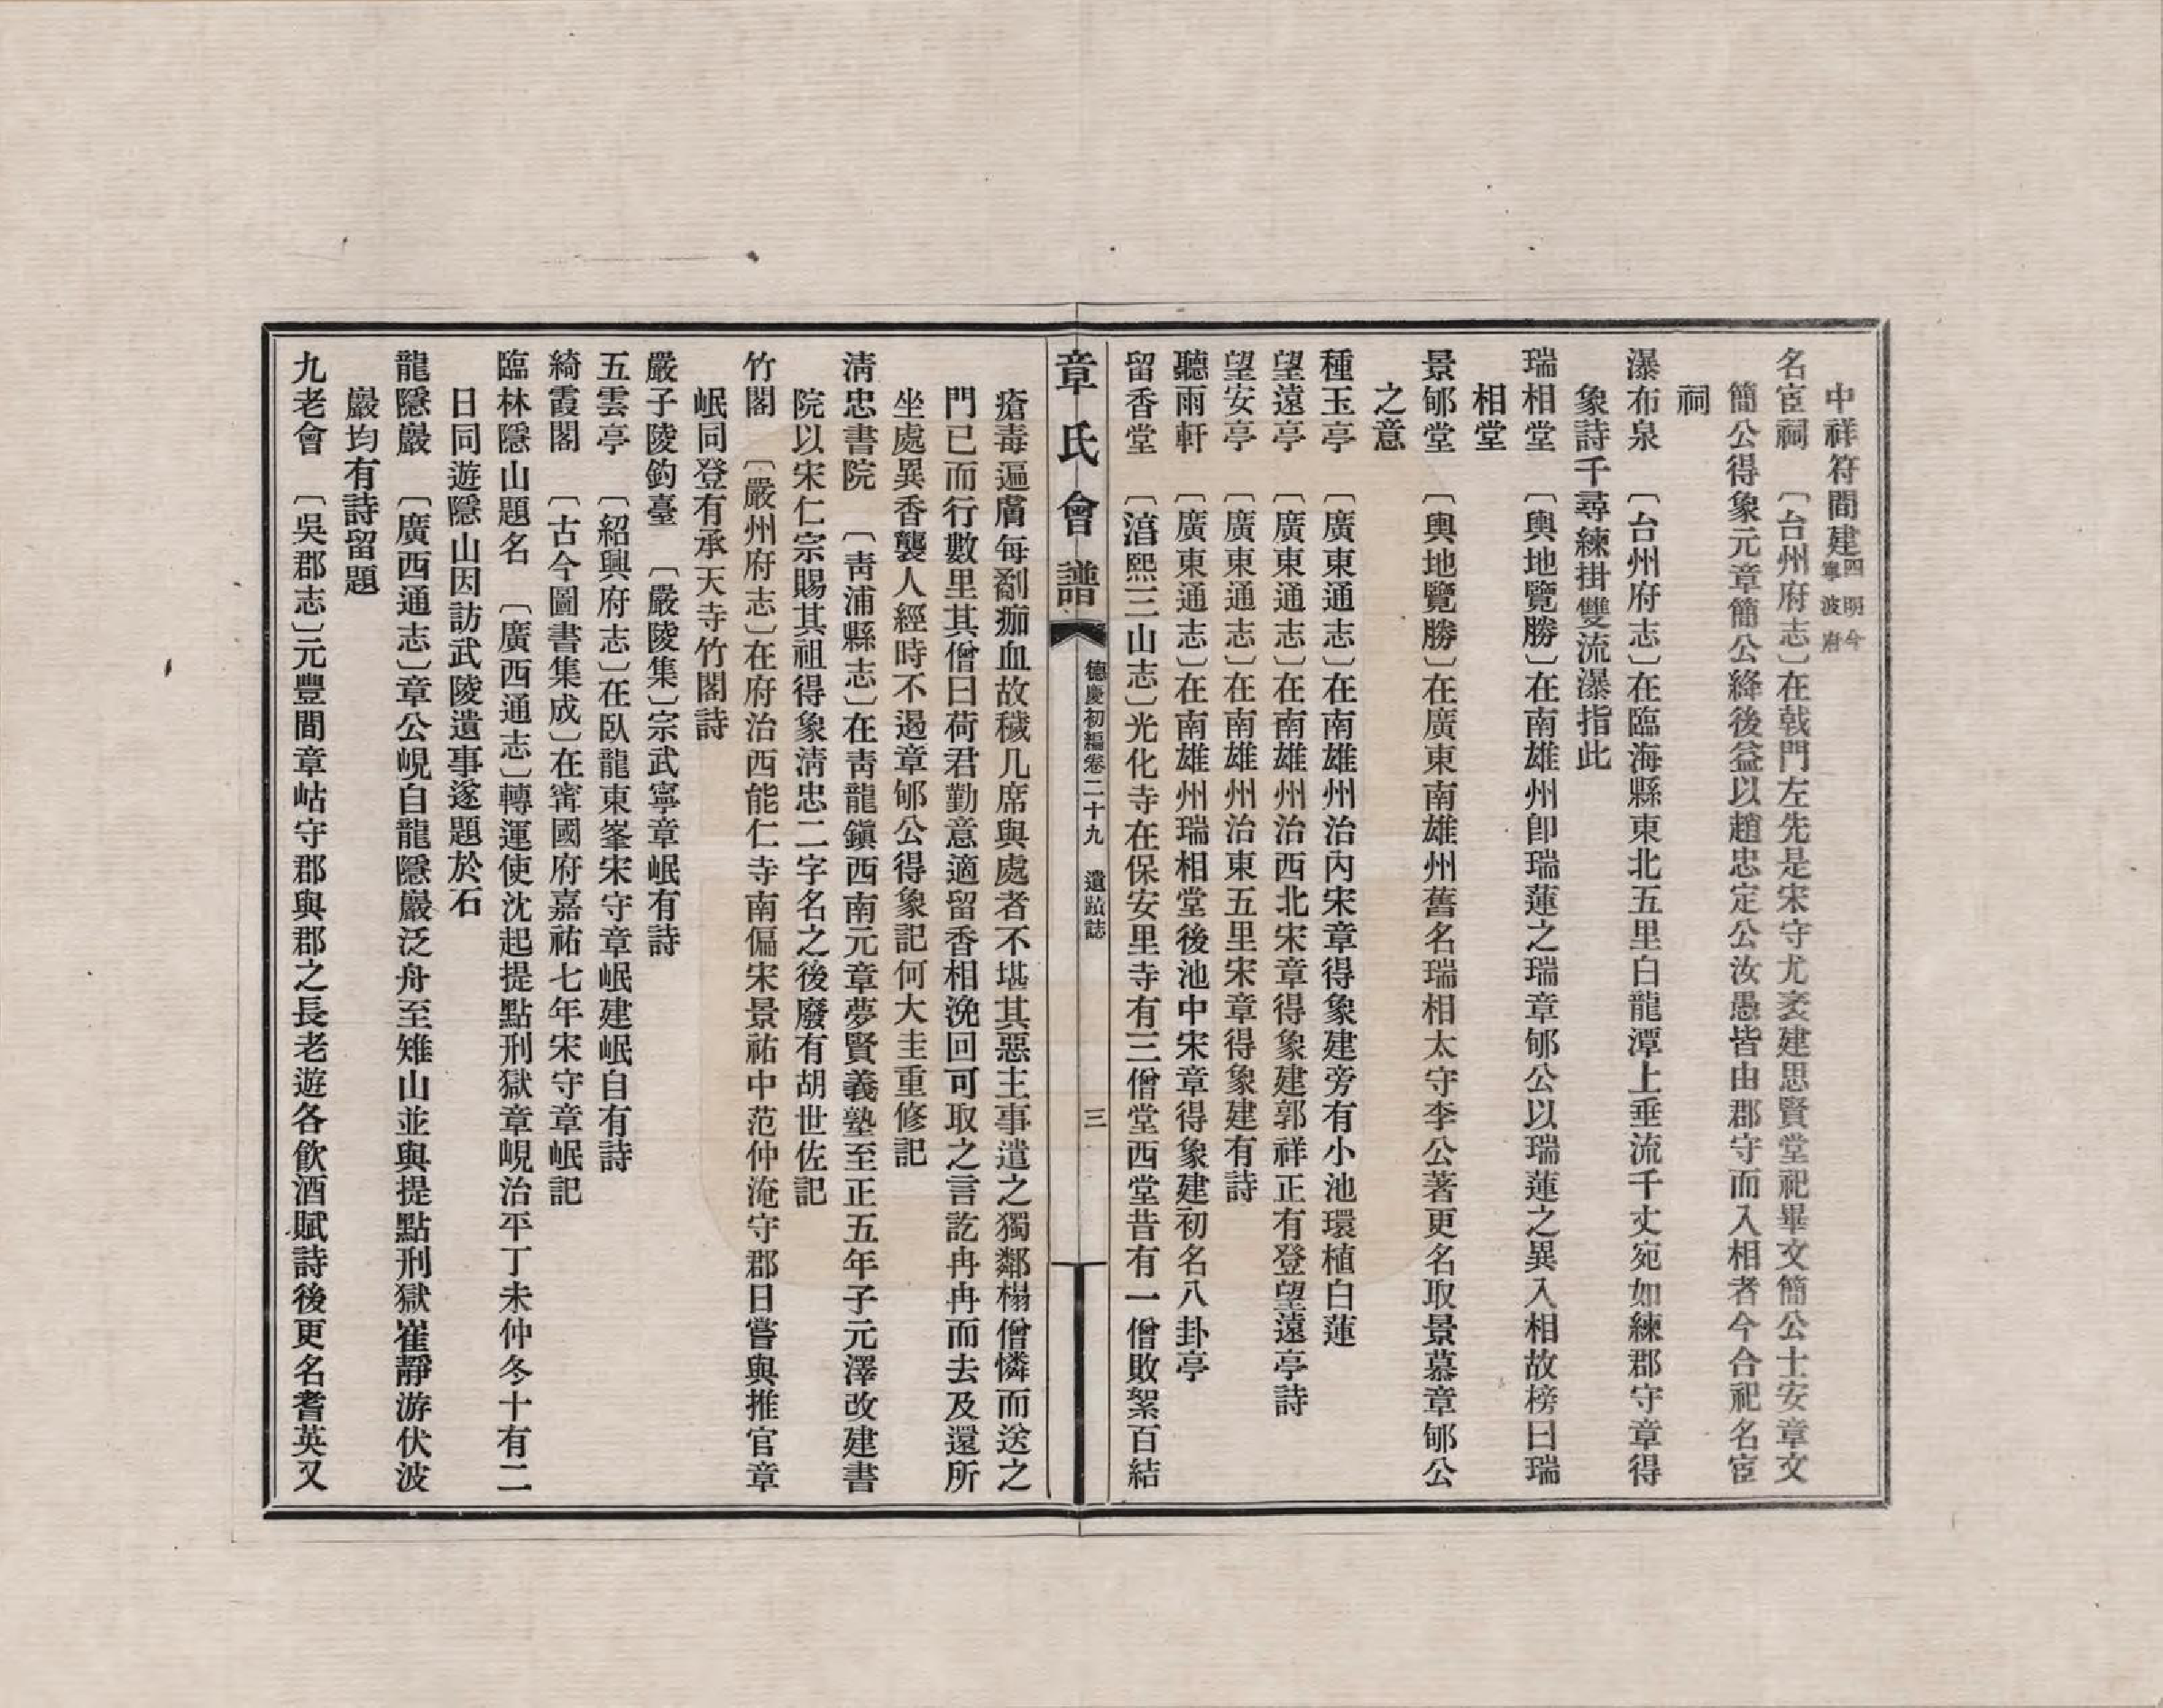 中祥符間建四明今寧波府
名宦祠　〔台州府志〕在戟門左先是宋守尤袤建思賢堂祀畢文簡公士安章文
簡公得象元章簡公絳後益以趙忠定公汝愚皆由郡守而入相者今合祀名宦
祠
瀑布泉　〔台州府志〕在臨海縣東北五里白龍潭上垂流千丈宛如練郡守章得
象詩千尋練掛雙流瀑指此
瑞相堂　〔輿地覽勝〕在南雄州卽瑞蓮之瑞章郇公以瑞蓮之異入相故榜曰瑞
相堂
景郇堂　〔輿地覽勝〕在廣東南雄州舊名瑞相太守李公著更名取景慕章郇公
之意
種玉亭　〔廣東通志〕在南雄州治內宋章得象建旁有小池環植白蓮
望遠亭　〔廣東通志〕在南雄州治西北宋章得象建郭祥正有登望遠亭詩
望安亭　〔廣東通志〕在南雄州治東五里宋章得象建有詩
聽雨軒　〔廣東通志〕在南雄州瑞相堂後池中宋章得象建初名八卦亭
留香堂　〔淳熙三山志〕光化寺在保安里寺有三僧堂西堂昔有一僧敗絮百結
章氏會譜　德慶初編卷二十九　遺蹟誌　三
瘡毒遍膚每劀痂血故穢几席與處者不堪其惡主事遣之獨鄰榻僧憐而送之
門已而行數里其僧曰荷君勤意適留香相浼回可取之言訖冉冉而去及還所
坐處異香襲人經時不遏章郇公得象記何大圭重修記
淸忠書院　〔靑浦縣志〕在靑龍鎭西南元章夢賢義塾至正五年子元澤改建書
院以宋仁宗賜其祖得象淸忠二字名之後廢有胡世佐記
竹閣　〔嚴州府志〕在府治西能仁寺南偏宋景祐中范仲淹守郡日嘗與推官章
岷同登有承天寺竹閣詩
嚴子陵釣臺　〔嚴陵集〕宗武寧章岷有詩
五雲亭　〔紹興府志〕在臥龍東峯宋守章岷建岷自有詩
綺霞閣　〔古今圖書集成〕在寗國府嘉祐七年宋守章岷記
臨林隱山題名　〔廣西通志〕轉運使沈起提點刑獄章峴治平丁未仲冬十有二
日同遊隱山因訪武陵遺事遂題於石
龍隱巖　〔廣西通志〕章公峴自龍隱巖泛舟至雉山並與提點刑獄崔靜游伏波
巖均有詩留題
九老會　〔吳郡志〕元豐間章岵守郡與郡之長老遊各飮酒賦詩後更名耆英又